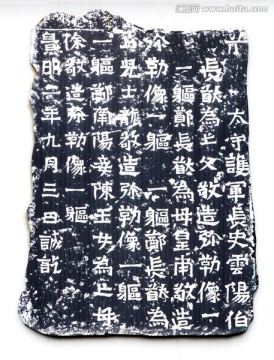 太守護軍長史雲陽伯
長猷為亡父敬造弥勒像一
一軀鄭長猷為母皇甫敬造
弥勒像一軀鄭長猷為
亡兒士龍敬造弥勒像一軀
一軀鄭南陽妾陳玉女為亡母
徐敬造弥勒像一軀
景明二年九月三日誡訖
www.huitu.com